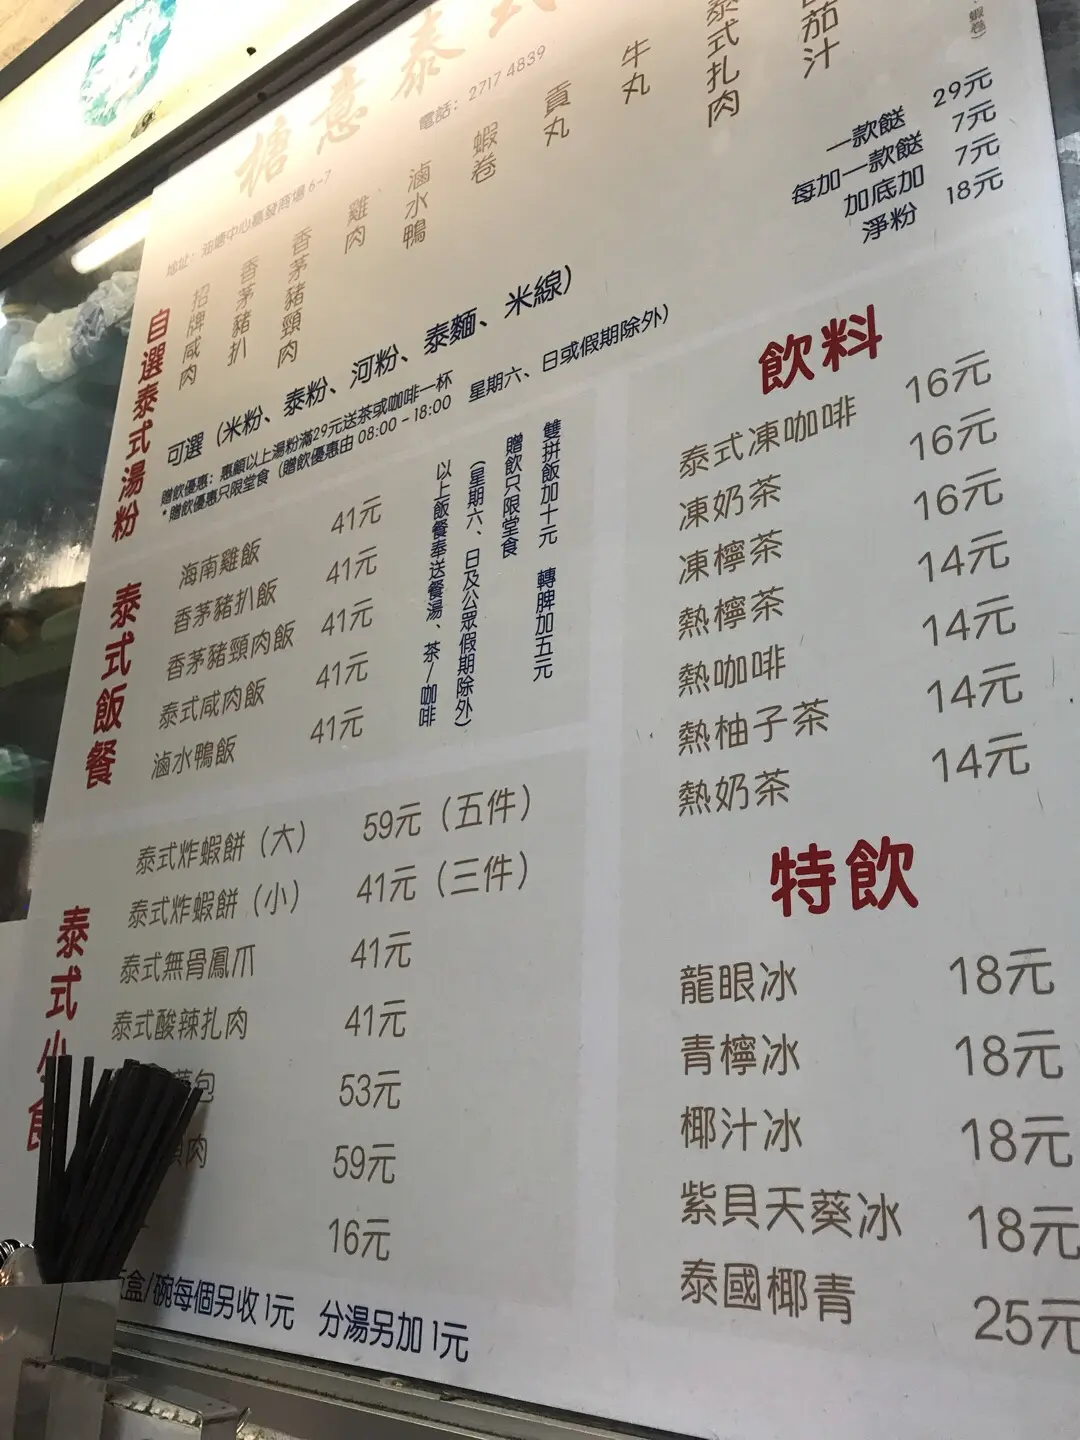 糖意泰式
電話：2717 4839
地址：油塘中心嘉發商場 6-7
自選泰式湯粉
招牌咸肉
香茅豬扒
香茅豬頸肉
雞肉
滷水鴨
蝦卷
貢丸
牛丸
泰式扎肉
茄汁
蝦卷）
一款餸 29元
每加一款餸 7元
加底加 7元
淨粉 18元
可選（米粉、泰粉、河粉、泰麵、米線）
贈飲優惠：惠顧以上湯粉滿29元送茶或咖啡一杯
*贈飲優惠只限堂食（贈飲優惠由 08:00 - 18:00 星期六、日或假期除外）
泰式飯餐
海南雞飯 41元
香茅豬扒飯 41元
香茅豬頸肉飯 41元
泰式咸肉飯 41元
滷水鴨飯 41元
雙拼飯加十元 轉脾加五元
贈飲只限堂食
（星期六、日及公眾假期除外）
以上飯餐奉送餐湯、茶/咖啡
泰式小食
泰式炸蝦餅（大） 59元（五件）
泰式炸蝦餅（小） 41元（三件）
泰式無骨鳳爪 41元
泰式酸辣扎肉 41元
包 53元
肉 59元
16元
盒/碗每個另收1元 分湯另加1元
飲料
泰式凍咖啡 16元
凍奶茶 16元
凍檸茶 16元
熱檸茶 14元
熱咖啡 14元
熱柚子茶 14元
熱奶茶 14元
特飲
龍眼冰 18元
青檸冰 18元
椰汁冰 18元
紫貝天葵冰 18元
泰國椰青 25元